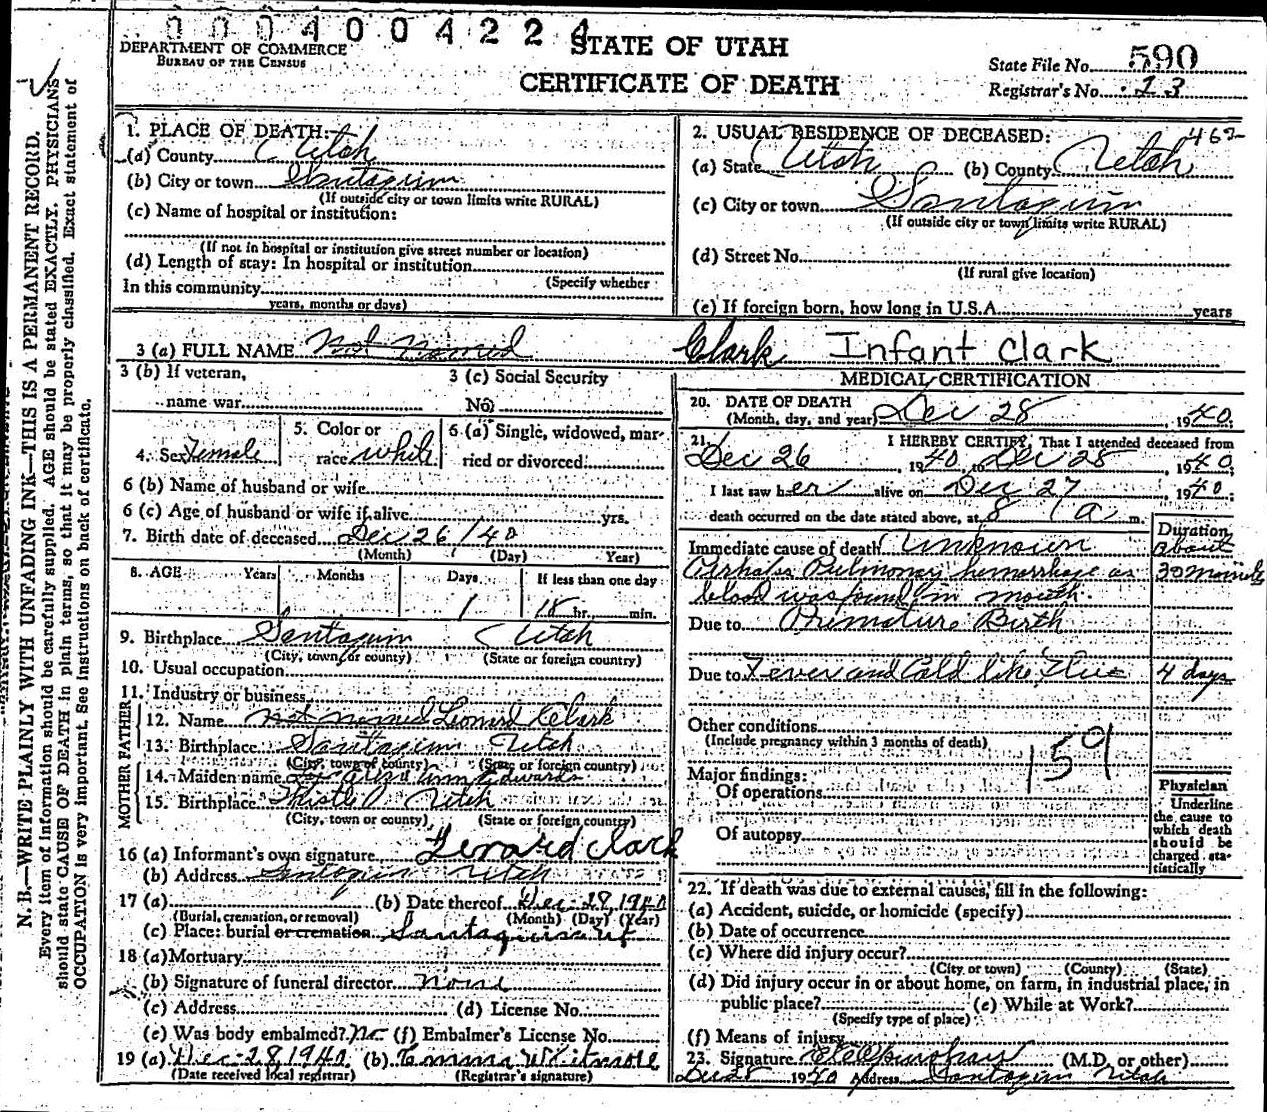 0004004224
STATE OF UTAH
DEPARTMENT OF COMMERCE
BUREAU OF THE CENSUS
CERTIFICATE OF DEATH
State File No. 590
Registrar's No. 23
N. B.—WRITE PLAINLY WITH UNFADING INK—THIS IS A PERMANENT RECORD.
Every item of information should be carefully supplied. AGE should be stated EXACTLY. PHYSICIANS
should state CAUSE OF DEATH in plain terms, so that it may be properly classified. Exact statement of
OCCUPATION is very important. See instructions on back of certificate.
1. PLACE OF DEATH:
(a) County Utah
(b) City or town Santaquin
(If outside city or town limits write RURAL)
(c) Name of hospital or institution:
(If not in hospital or institution give street number or location)
(d) Length of stay: In hospital or institution
(Specify whether
In this community
years, months or days)
2. USUAL RESIDENCE OF DECEASED: 462
(a) State Utah (b) County Utah
(c) City or town Santaquin
(If outside city or town limits write RURAL)
(d) Street No.
(If rural give location)
(e) If foreign born, how long in U.S.A. years
3 (a) FULL NAME Not Named Clark Infant Clark
3 (b) If veteran,
name war
3 (c) Social Security
No.
4. Sex Female
5. Color or
race White
6 (a) Single, widowed, mar-
ried or divorced:
6 (b) Name of husband or wife
6 (c) Age of husband or wife if alive yrs.
7. Birth date of deceased Dec 26 / 40
(Month) (Day) Year)
8. AGE Years Months Days If less than one day
1 18 hr. min.
9. Birthplace Santaquin Utah
(City, town, or county) (State or foreign country)
10. Usual occupation
11. Industry or business
FATHER
12. Name Not named Leonard Clark
13. Birthplace Santaquin Utah
(City, town of county) (State or foreign country)
MOTHER
14. Maiden name Ann Edwards
15. Birthplace Thistle Utah
(City, town or county) (State or foreign country)
16 (a) Informant's own signature Lenard Clark
(b) Address Santaquin Utah
17 (a) (b) Date thereof Dec-28, 1940
(Burial, cremation, or removal) (Month) (Day) (Year)
(c) Place: burial or cremation Santaquin Ut
18 (a) Mortuary
(b) Signature of funeral director None
(c) Address (d) License No.
(e) Was body embalmed? No (f) Embalmer's License No.
19 (a) Dec-28, 1940 (b) Emma Whitmore
(Date received local registrar) (Registrar's signature)
MEDICAL CERTIFICATION
20. DATE OF DEATH
(Month, day, and year) Dec 28, 1940
21. I HEREBY CERTIFY, That I attended deceased from
Dec 26, 1940, to Dec 28, 1940;
I last saw her alive on Dec 27, 1940;
death occurred on the date stated above, at 8 a m.
Duration
Immediate cause of death Unknown about
Perhaps Pulmonary hemorrhage as 30 minutes
blood was found in mouth.
Due to Premature Birth
Due to Fever and Cold like Flue 4 days
Other conditions
(Include pregnancy within 3 months of death)
159
Major findings:
Of operations
Of autopsy
Physician
Underline
the cause to
which death
should be
charged sta-
tistically
22. If death was due to external causes, fill in the following:
(a) Accident, suicide, or homicide (specify)
(b) Date of occurrence
(c) Where did injury occur?
(City or town) (County) (State)
(d) Did injury occur in or about home, on farm, in industrial place, in
public place? (e) While at Work?
(Specify type of place)
(f) Means of injury
23. Signature (M.D. or other)
Dec 28 1940 Address Santaquin Utah